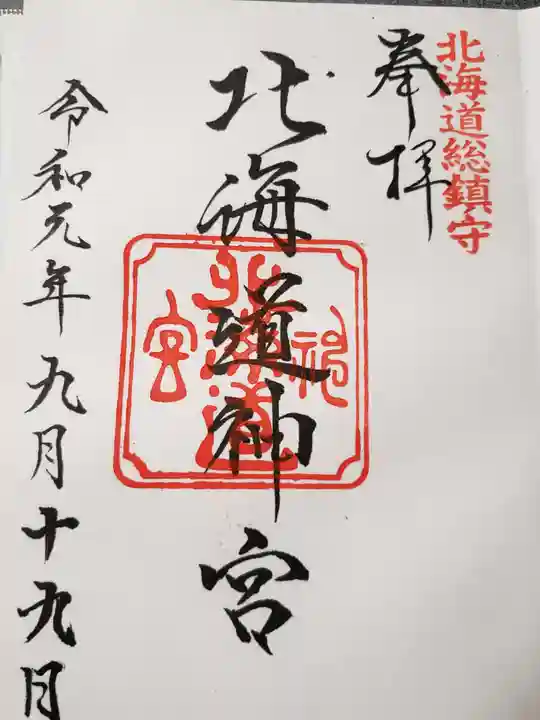 北海道総鎮守
奉拝
北海道神宮
神
北海道
宮
令和元年九月十九日